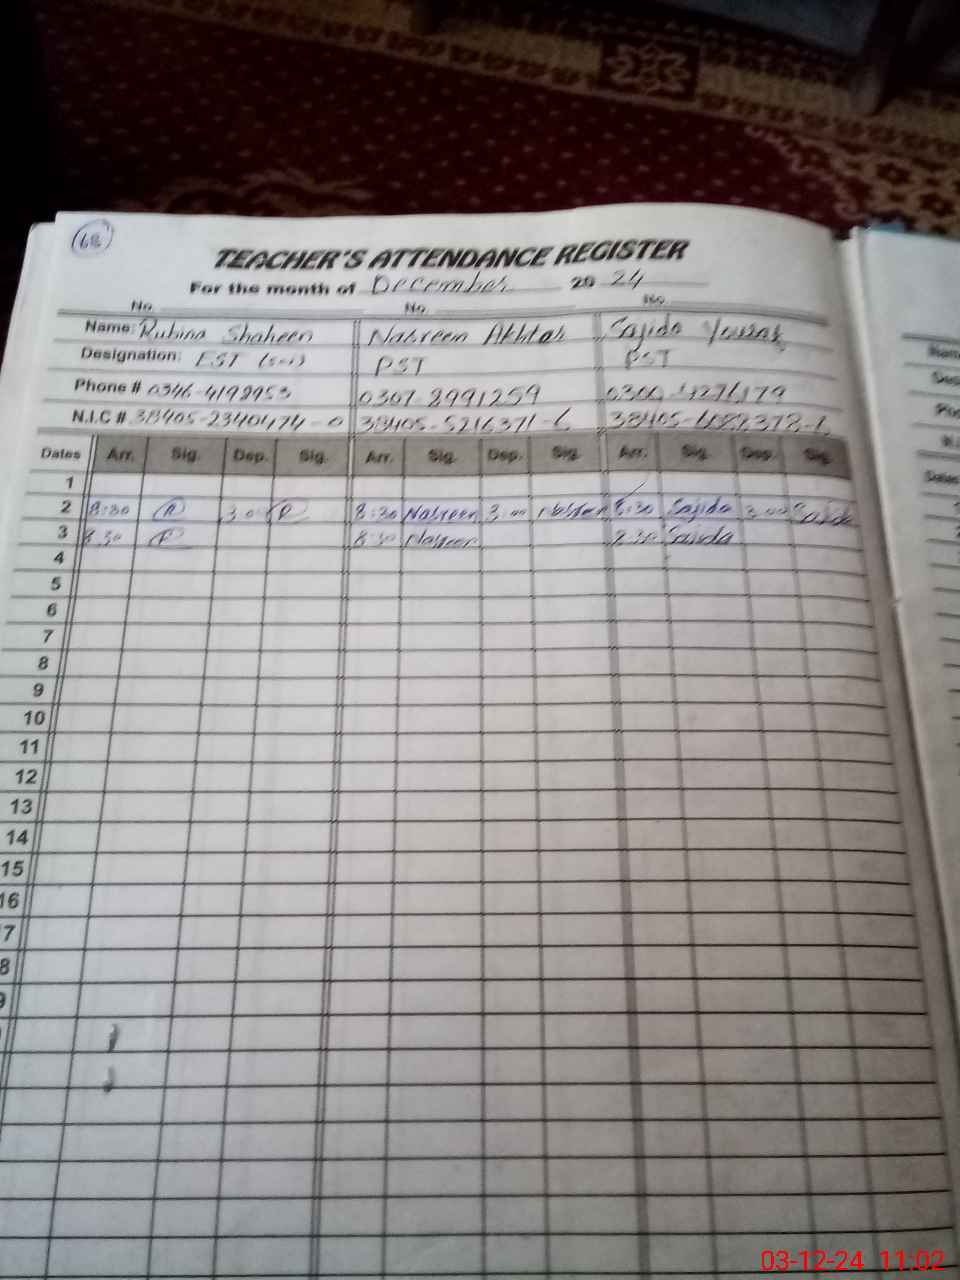 68
TEACHER'S ATTENDANCE REGISTER
For the month of December 2024
No. No. No.
Name: Rubina Shaheen Nasreen Akhtar Sajida
Designation: EST PST PST
Phone # 0346-4198953 0307-8991259
N.I.C # 38405-2340474-0 38405-5216371-6
Dates Arr. Sig. Dep. Sig. Arr. Sig. Dep. Sig. Arr. Sig. Dep. Sig.
1
2 8:30 R 3:00 R 8:30 Nasreen 3:00 Nasreen 8:30 Sajida 3:00 Sajida
3 8:30 R 8:30 Nasreen 8:30 Sajida
4
5
6
7
8
9
10
11
12
13
14
15
16
7
8
9
03-12-24 11:02